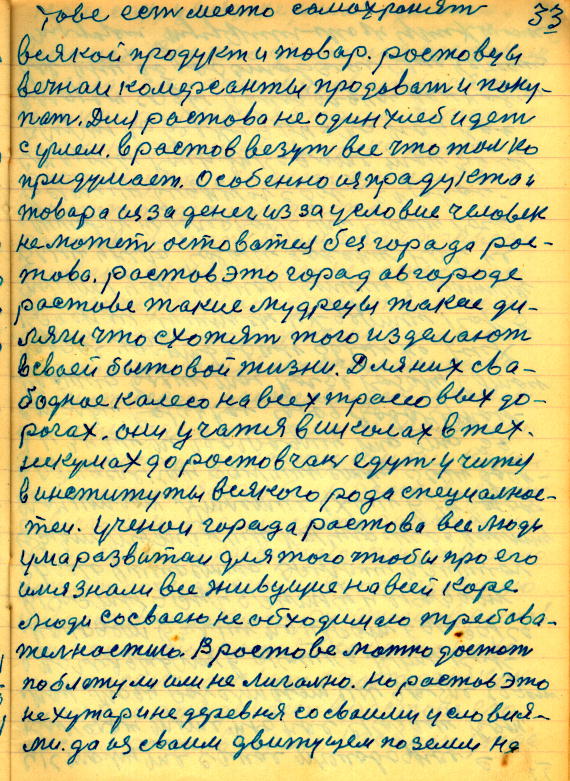 33
тове есть место самахранят
всякой продукт и товар. ростовцы
вечнаи комерсанты продовать и поку-
пат. Для растова не один хлеб идет
с углем. в растов везут все что толко
придумает. Особенно из прадукта и
товара из за денег из за условие человек
не может остоватся без горада рос-
това. растов это горад а в городе
растове такие мудрецы такие ди-
ляги что схотят того изделают
в сваей бытовой жизни. Для них сва-
бодное калесо на всех трассовых до-
рогах. они учатся в школах в тех-
никумах до ростовчан едут учится
в институты всякого рода специалнос-
теи. Ученои горада растова все люди
ума развитаи для того чтобы про его
имя знали все живущие на всей каре
люди со сваею не обходимаю требова-
телностию. В ростове можно достат
по блату ли или не лигално. но растов это
не хутар и не деревня со сваими условия-
ми. да из сваим движущем по земли на